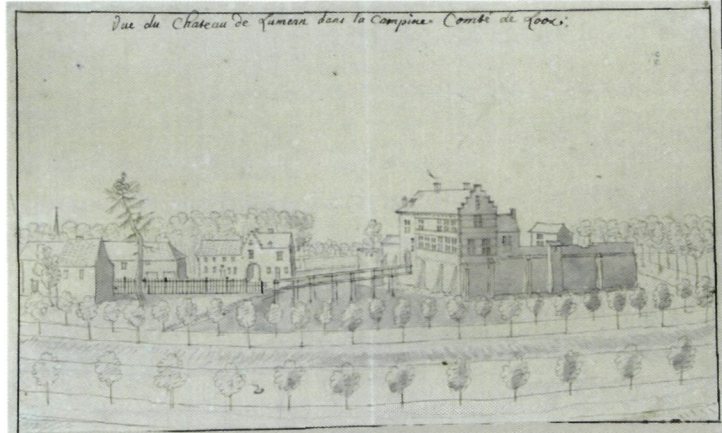 Vue du Chateau de Lumenn dans la Campine. Comté de Looz.